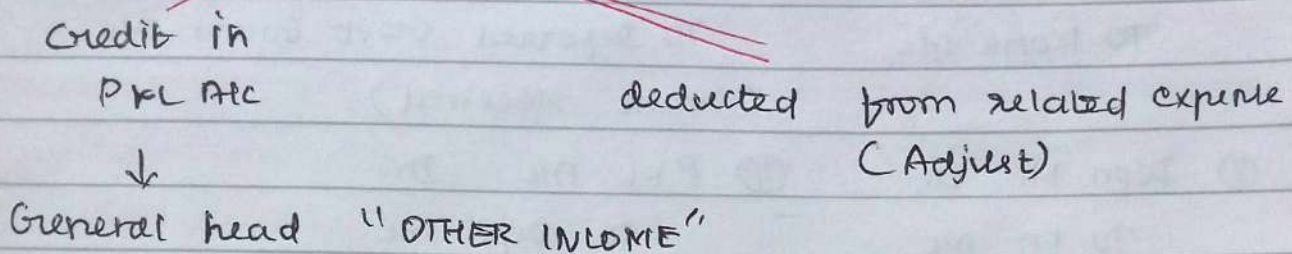 Credit in
P&L A/c deducted from related expense
↓ (Adjust)
General head "OTHER INCOME"